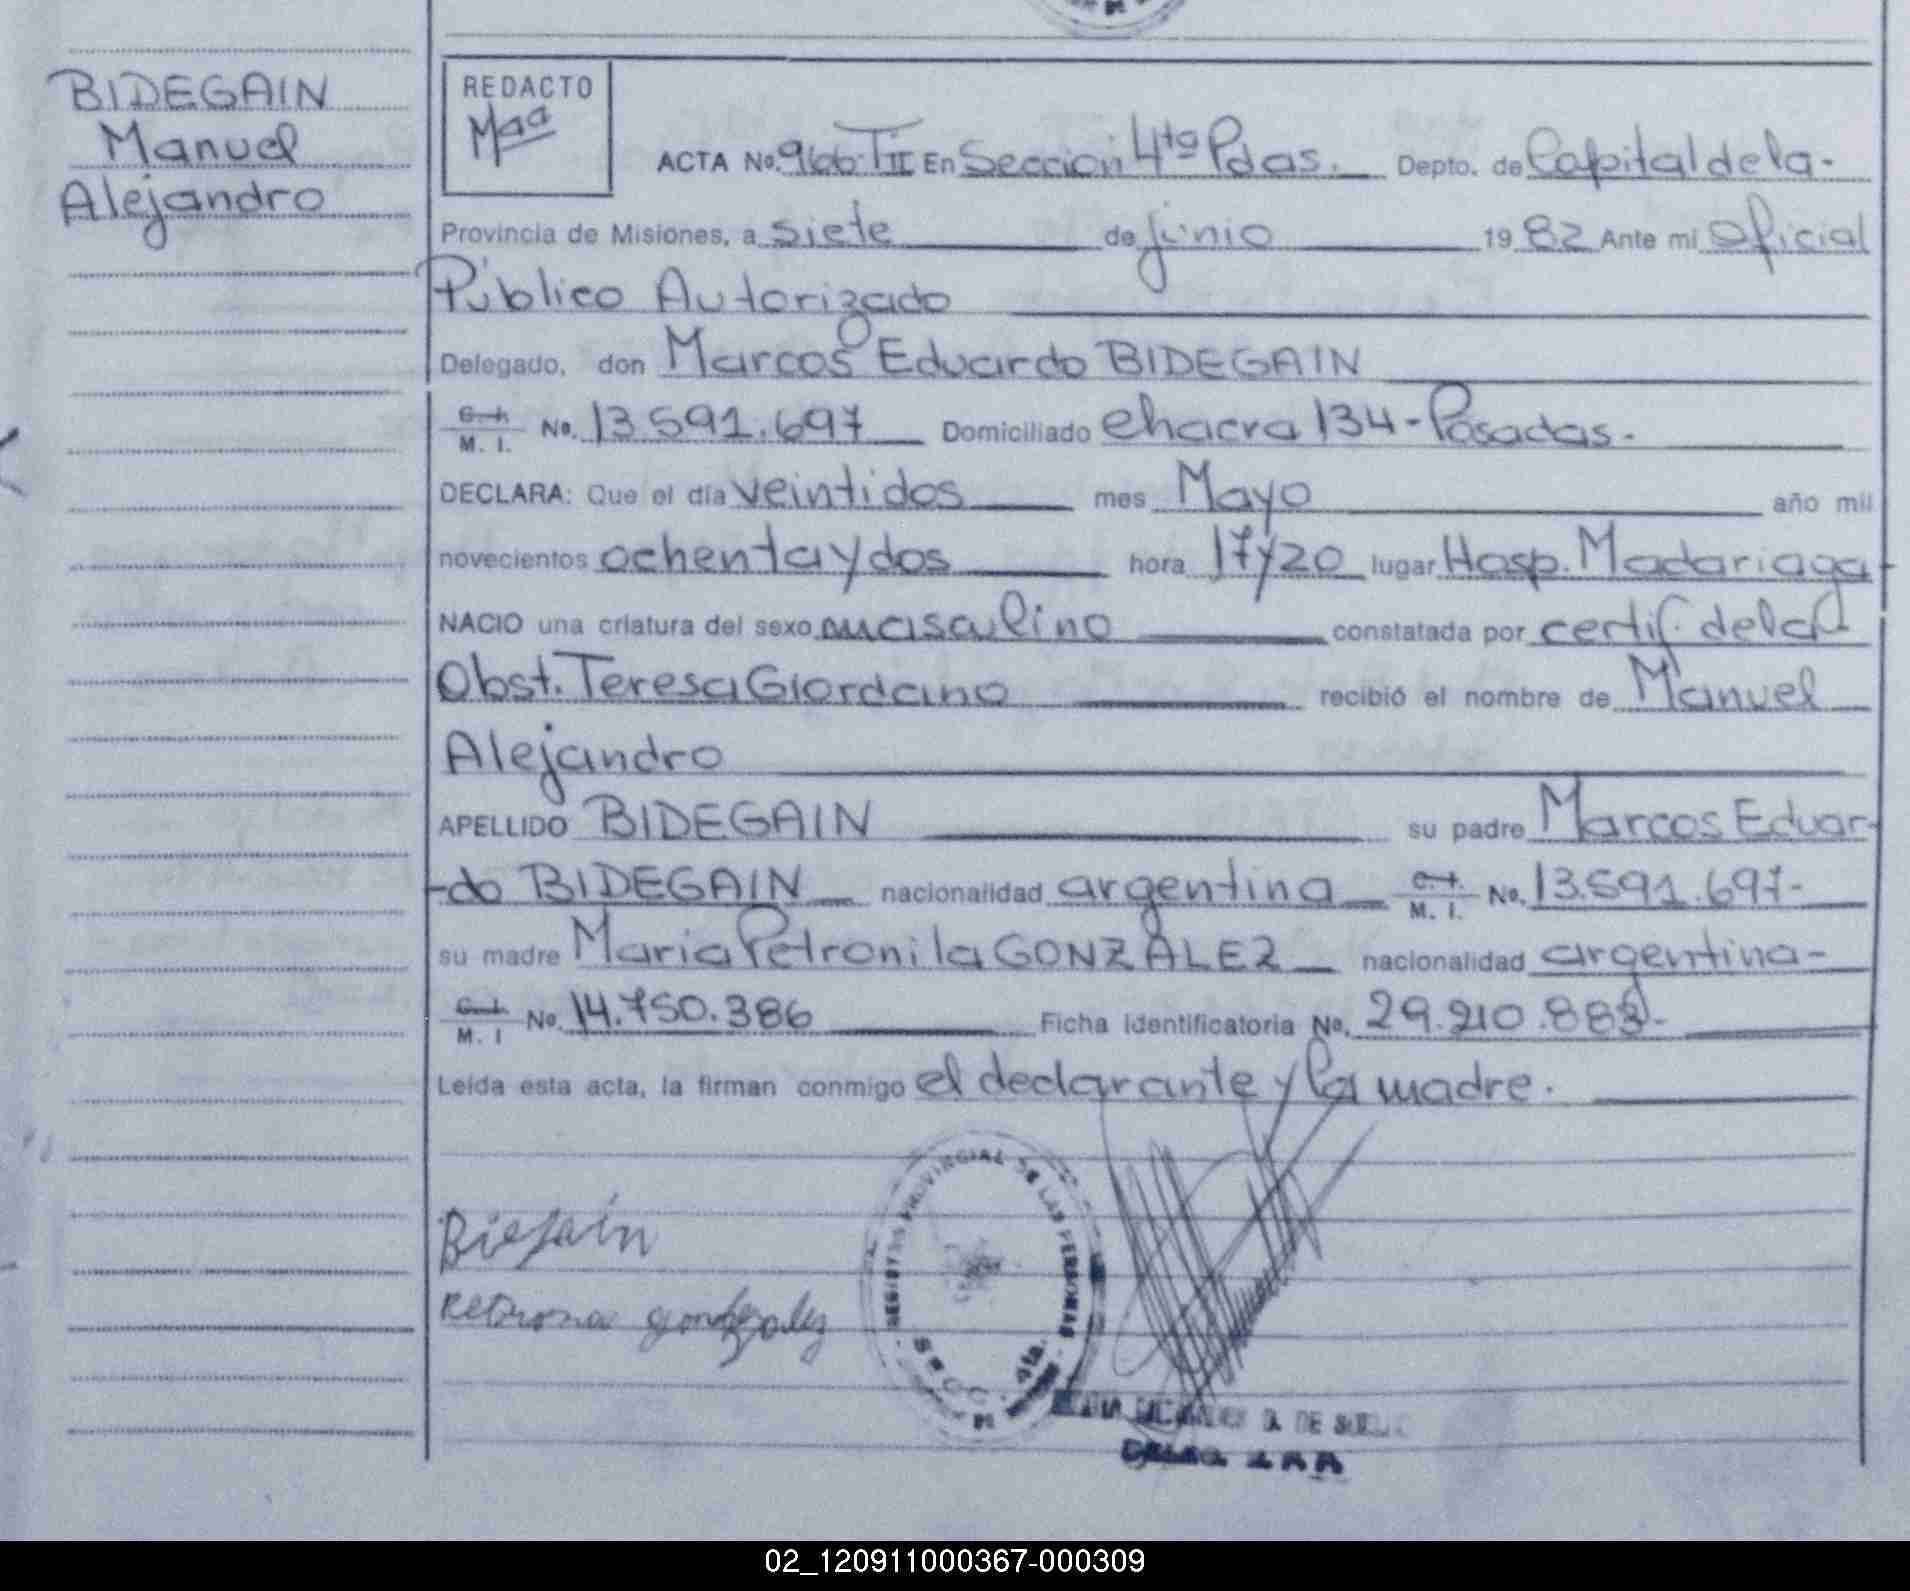 BIDEGAIN
Manuel
Alejandro
REDACTO
Maa
ACTA No. 966-TII En Seccion 4ta Pdas. Depto. de Capital de la-
Provincia de Misiones, a siete de junio 1982 Ante mí Oficial
Público Autorizado
Delegado, don Marcos Eduardo BIDEGAIN
C. I. M. I. No. 13.591.697 Domiciliado chacra 134-Posadas-
DECLARA: Que el día veintidos mes Mayo año mil
novecientos ochenta y dos hora 17y20 lugar Hosp. Madariaga
NACIO una criatura del sexo masculino constatada por certif. de la
Obst. Teresa Giordano recibió el nombre de Manuel
Alejandro
APELLIDO BIDEGAIN su padre Marcos Eduar-
-do BIDEGAIN nacionalidad argentina C. I. M. I. No. 13.591.697-
su madre Maria Petronila GONZALEZ nacionalidad argentina-
C. I. M. I No. 14.750.386 Ficha identificatoria No. 29.210.883-
Leída esta acta, la firman conmigo el declarante y la madre.
REGISTRO PROVINCIAL DE LAS PERSONAS
SECC. 4ta.
gonzalez
DE
02_120911000367-000309